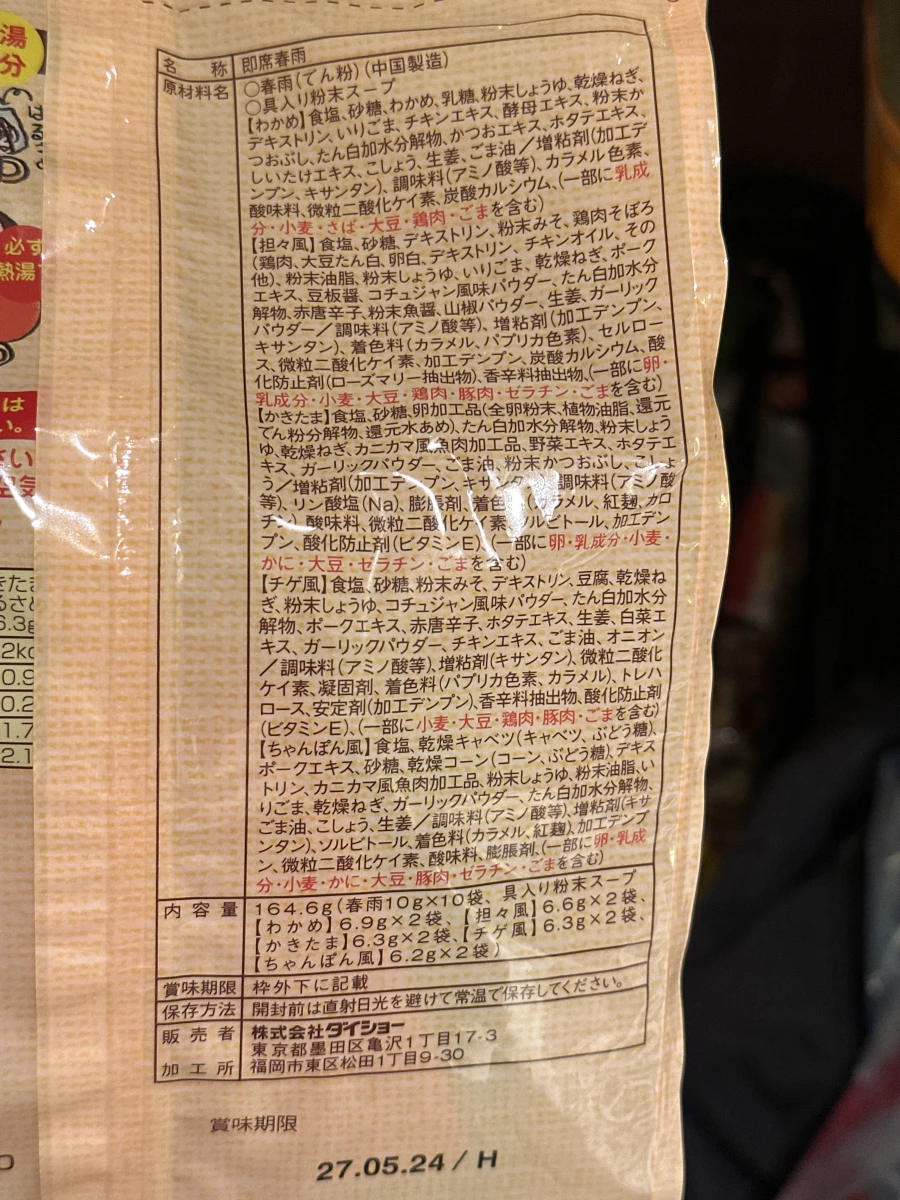 湯
分
必ず
熱湯
は
い。
さい
空気
きたま
るさめ
6.3g
2kc
0.9
0.2
1.7
2.1
名称 即席春雨
原材料名 ○春雨(でん粉)(中国製造)
○具入り粉末スープ
【わかめ】食塩、砂糖、わかめ、乳糖、粉末しょうゆ、乾燥ねぎ、
デキストリン、いりごま、チキンエキス、酵母エキス、粉末か
つおぶし、たん白加水分解物、かつおエキス、ホタテエキス、
しいたけエキス、こしょう、生姜、ごま油/増粘剤(加工デ
ンプン、キサンタン)、調味料(アミノ酸等)、カラメル色素、
酸味料、微粒二酸化ケイ素、炭酸カルシウム、(一部に乳成
分・小麦・さば・大豆・鶏肉・ごまを含む)
【担々風】食塩、砂糖、デキストリン、粉末みそ、鶏肉そぼろ
(鶏肉、大豆たん白、卵白、デキストリン、チキンオイル、その
他)、粉末油脂、粉末しょうゆ、いりごま、乾燥ねぎ、ポーク
エキス、豆板醤、コチュジャン風味パウダー、たん白加水分
解物、赤唐辛子、粉末魚醤、山椒パウダー、生姜、ガーリック
パウダー/調味料(アミノ酸等)、増粘剤(加工デンプン、
キサンタン)、着色料(カラメル、パプリカ色素)、セルロー
ス、微粒二酸化ケイ素、加工デンプン、炭酸カルシウム、酸
化防止剤(ローズマリー抽出物)、香辛料抽出物、(一部に卵・
乳成分・小麦・大豆・鶏肉・豚肉・ゼラチン・ごまを含む)
【かきたま】食塩、砂糖、卵加工品(全卵粉末、植物油脂、還元
でん粉分解物、還元水あめ)、たん白加水分解物、粉末しょう
ゆ、乾燥ねぎ、カニカマ風魚肉加工品、野菜エキス、ホタテエ
キス、ガーリックパウダー、ごま油、粉末かつおぶし、こしょ
う/増粘剤(加工デンプン、キサンタン)、調味料(アミノ酸
等)、リン酸塩(Na)、膨脹剤、着色料(カラメル、紅麹、カロ
チン)、酸味料、微粒二酸化ケイ素、ソルビトール、加工デン
プン、酸化防止剤(ビタミンE)、(一部に卵・乳成分・小麦・
かに・大豆・ゼラチン・ごまを含む)
【チゲ風】食塩、砂糖、粉末みそ、デキストリン、豆腐、乾燥ね
ぎ、粉末しょうゆ、コチュジャン風味パウダー、たん白加水分
解物、ポークエキス、赤唐辛子、ホタテエキス、生姜、白菜エ
キス、ガーリックパウダー、チキンエキス、ごま油、オニオン
/調味料(アミノ酸等)、増粘剤(キサンタン)、微粒二酸化
ケイ素、凝固剤、着色料(パプリカ色素、カラメル)、トレハ
ロース、安定剤(加工デンプン)、香辛料抽出物、酸化防止剤
(ビタミンE)、(一部に小麦・大豆・鶏肉・豚肉・ごまを含む)
【ちゃんぽん風】食塩、乾燥キャベツ(キャベツ、ぶどう糖)、
ポークエキス、砂糖、乾燥コーン(コーン、ぶどう糖)、デキス
トリン、カニカマ風魚肉加工品、粉末しょうゆ、粉末油脂、い
りごま、乾燥ねぎ、ガーリックパウダー、たん白加水分解物、
ごま油、こしょう、生姜/調味料(アミノ酸等)、増粘剤(キサ
ンタン)、ソルビトール、着色料(カラメル、紅麹)、加工デンプ
ン、微粒二酸化ケイ素、酸味料、膨脹剤、(一部に卵・乳成
分・小麦・かに・大豆・豚肉・ゼラチン・ごまを含む)
内容量 164.6g(春雨10g×10袋、具入り粉末スープ
【わかめ】6.9g×2袋、【担々風】6.6g×2袋、
【かきたま】6.3g×2袋、【チゲ風】6.3g×2袋、
【ちゃんぽん風】6.2g×2袋)
賞味期限 枠外下に記載
保存方法 開封前は直射日光を避けて常温で保存してください。
販売者 株式会社ダイショー
東京都墨田区亀沢1丁目17-3
加工所 福岡市東区松田1丁目9-30
賞味期限
27.05.24/H